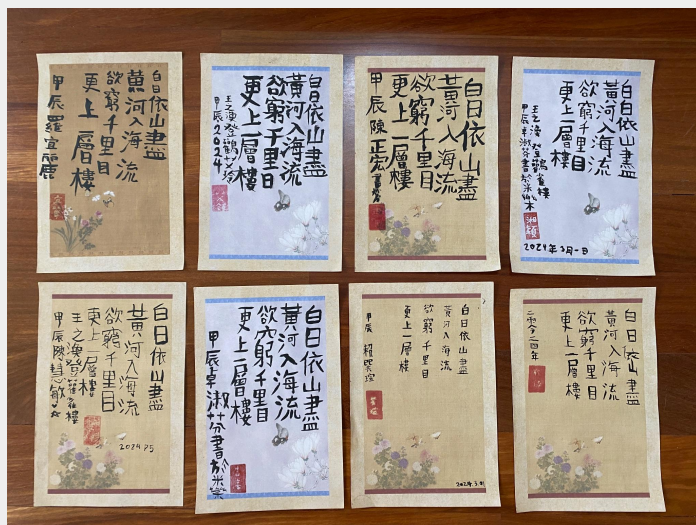 白日依山盡
黃河入海流
欲窮千里目
更上一層樓
甲辰羅宜麗
白日依山盡
黃河入海流
欲窮千里目
更上一層樓
王之渙登鸛
甲辰2024
白日依山盡
黃河入海流
欲窮千里目
更上一層樓
甲辰陳正宏書
白日依山盡
黃河入海流
欲窮千里目
更上一層樓
王之渙 登鸛雀樓
甲辰
湘穎
2024年3月一日
白日依山盡
黃河入海流
欲窮千里目
更上一層樓
王之渙登鸛雀樓
甲辰陳慧敏
2024
白日依山盡
黃河入海流
欲窮千里目
更上一層樓
甲辰卓淑芬書於米樂
白日依山盡
黃河入海流
欲窮千里目
更上一層樓
甲辰
2024.3.
白日依山盡
黃河入海流
欲窮千里目
更上一層樓
二零二四年